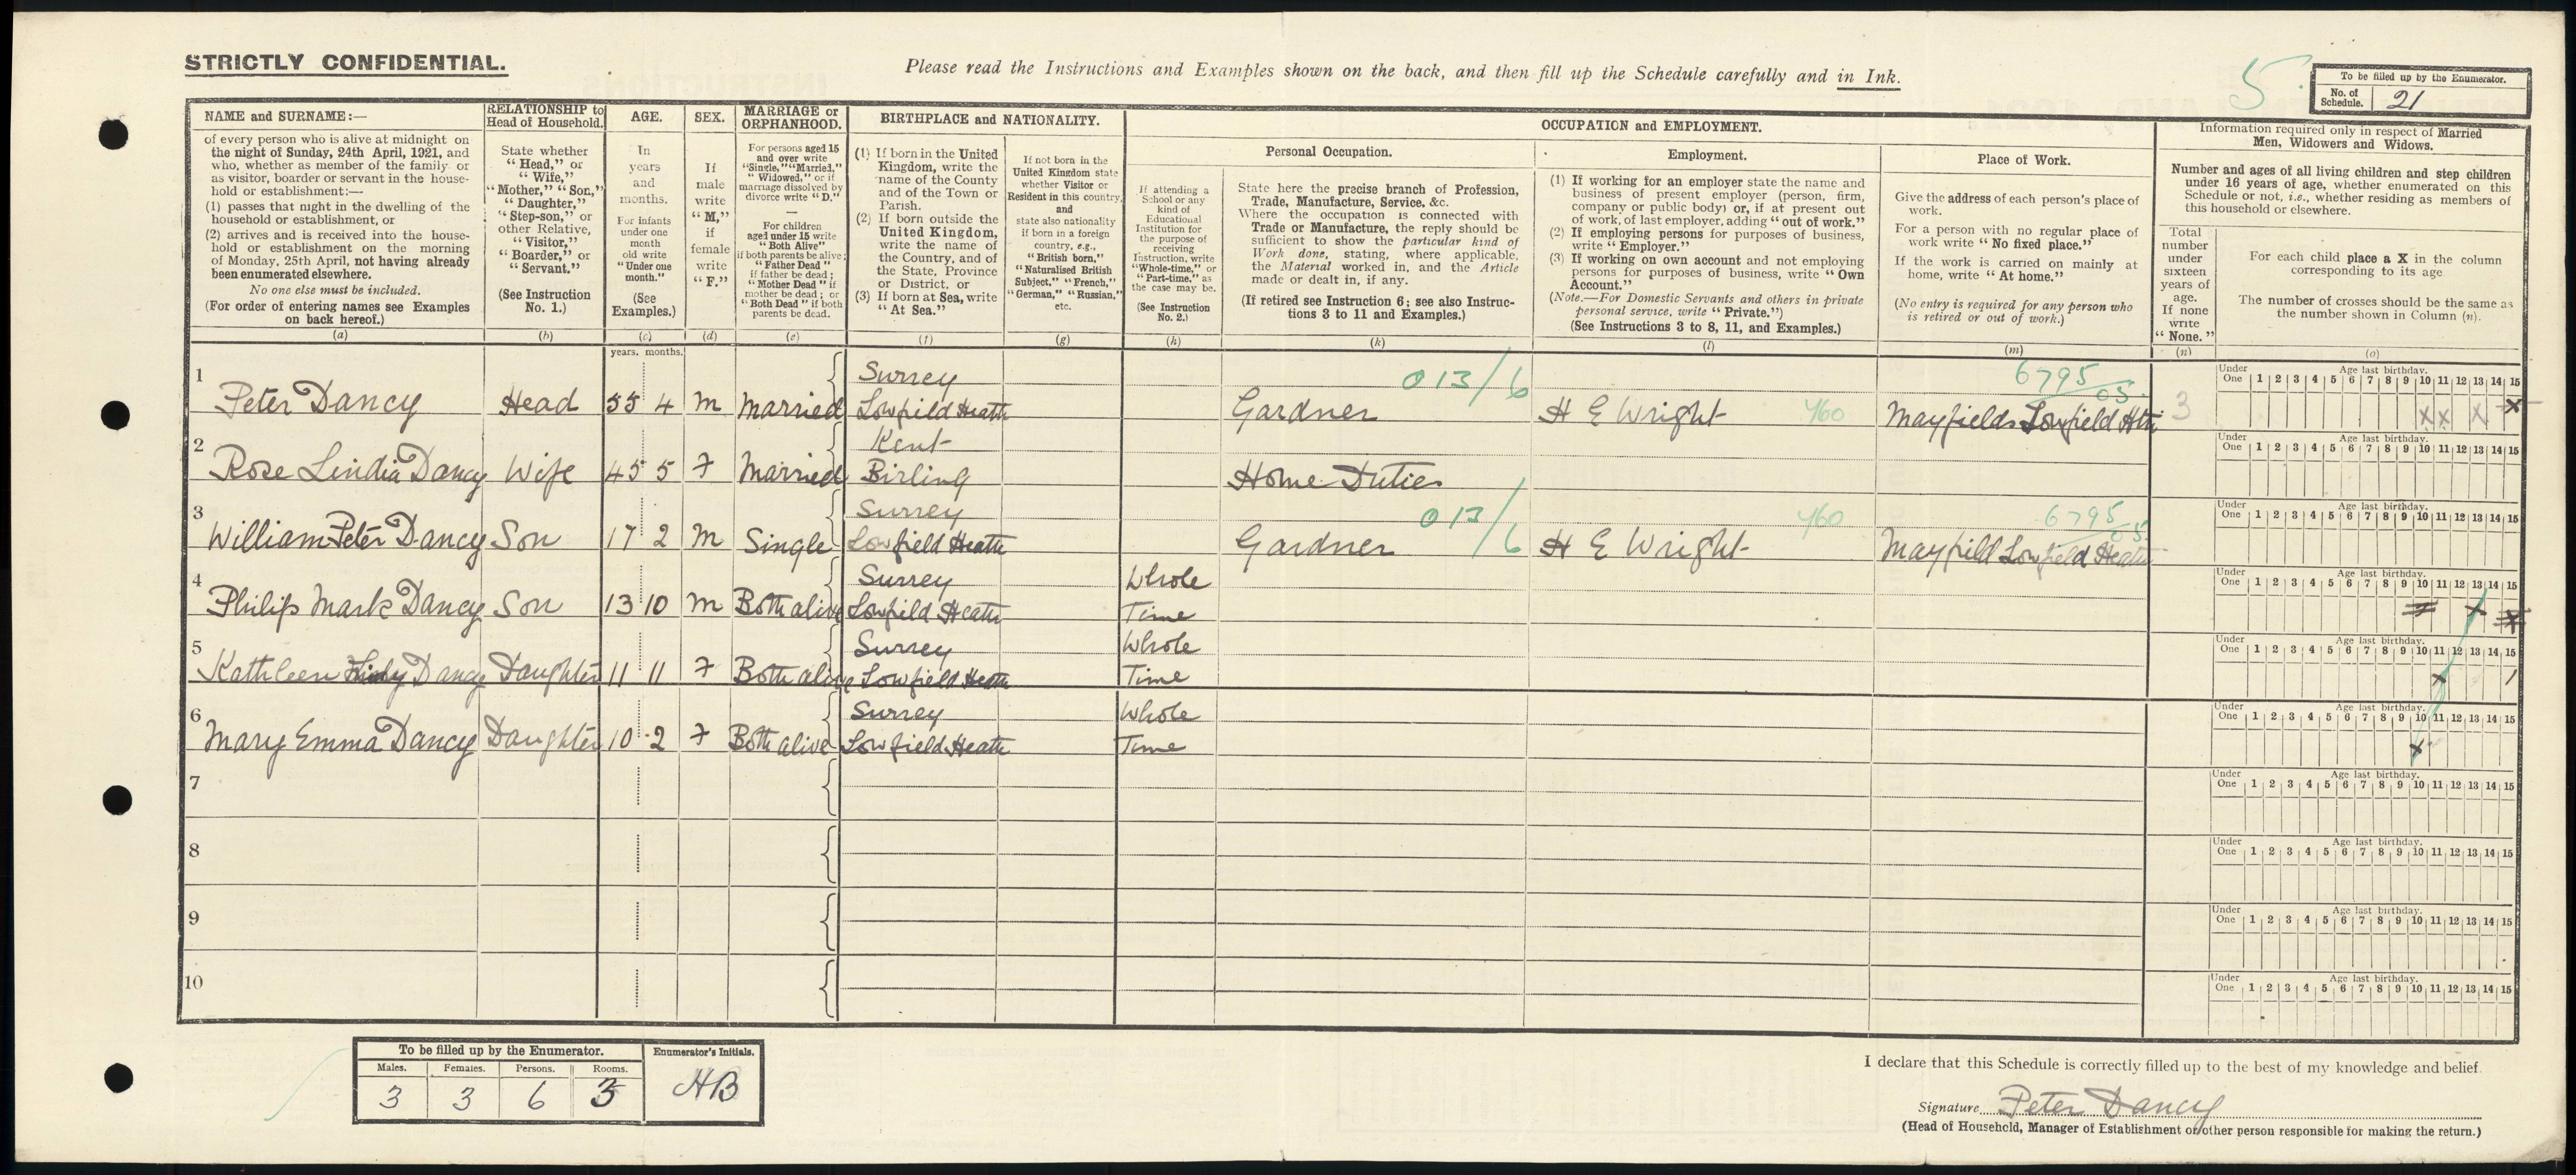 STRICTLY CONFIDENTIAL.
Please read the Instructions and Examples shown on the back, and then fill up the Schedule carefully and in Ink.
5.
To be filled up by the Enumerator.
No. of Schedule. 21
NAME and SURNAME:—
of every person who is alive at midnight on
the night of Sunday, 24th April, 1921, and
who, whether as member of the family or
as visitor, boarder or servant in the house-
hold or establishment:—
(1) passes that night in the dwelling of the
household or establishment, or
(2) arrives and is received into the house-
hold or establishment on the morning
of Monday, 25th April, not having already
been enumerated elsewhere.
No one else must be included.
(For order of entering names see Examples
on back hereof.)
(a)
RELATIONSHIP to
Head of Household.
State whether
"Head," or
"Wife,"
"Mother," "Son,"
"Daughter,"
"Step-son," or
other Relative,
"Visitor,"
"Boarder," or
"Servant."
(See Instruction
No. 1.)
(b)
AGE.
In
years
and
months.
For infants
under one
month
old write
"Under one
month."
(See
Examples.)
(c)
SEX.
If
male
write
"M,"
if
female
write
"F."
(d)
MARRIAGE or
ORPHANHOOD.
For persons aged 15
and over write
"Single," "Married,"
"Widowed," or if
marriage dissolved by
divorce write "D."
—
For children
aged under 15 write
"Both Alive"
if both parents be alive;
"Father Dead"
if father be dead;
"Mother Dead" if
mother be dead; or
"Both Dead" if both
parents be dead.
(e)
BIRTHPLACE and NATIONALITY.
(1) If born in the United
Kingdom, write the
name of the County
and of the Town or
Parish.
(2) If born outside the
United Kingdom,
write the name of
the Country, and of
the State, Province
or District, or
(3) If born at Sea, write
"At Sea."
(f)
If not born in the
United Kingdom state
whether Visitor or
Resident in this country,
and
state also nationality
if born in a foreign
country, e.g.,
"British born,"
"Naturalised British
Subject," "French,"
"German," "Russian,"
etc.
(g)
OCCUPATION and EMPLOYMENT.
If attending a
School or any
kind of
Educational
Institution for
the purpose of
receiving
Instruction, write
"Whole-time," or
"Part-time," as
the case may be.
(See Instruction
No. 2.)
(h)
Personal Occupation.
State here the precise branch of Profession,
Trade, Manufacture, Service, &c.
Where the occupation is connected with
Trade or Manufacture, the reply should be
sufficient to show the particular kind of
Work done, stating, where applicable,
the Material worked in, and the Article
made or dealt in, if any.
(If retired see Instruction 6; see also Instruc-
tions 3 to 11 and Examples.)
(k)
Employment.
(1) If working for an employer state the name and
business of present employer (person, firm,
company or public body) or, if at present out
of work, of last employer, adding "out of work."
(2) If employing persons for purposes of business,
write "Employer."
(3) If working on own account and not employing
persons for purposes of business, write "Own
Account."
(Note.—For Domestic Servants and others in private
personal service, write "Private.")
(See Instructions 3 to 8, 11, and Examples.)
(l)
Place of Work.
Give the address of each person's place of
work.
For a person with no regular place of
work write "No fixed place."
If the work is carried on mainly at
home, write "At home."
(No entry is required for any person who
is retired or out of work.)
(m)
Information required only in respect of Married
Men, Widowers and Widows.
Number and ages of all living children and step children
under 16 years of age, whether enumerated on this
Schedule or not, i.e., whether residing as members of
this household or elsewhere.
Total
number
under
sixteen
years of
age.
If none
write
"None."
(n)
For each child place a X in the column
corresponding to its age
The number of crosses should be the same as
the number shown in Column (n).
(o)
years. months.
Under One 1 2 3 4 5 6 7 8 9 10 11 12 13 14 15
Age last birthday.
1 Peter Dancy Head 55 4 M Married Surrey Lowfield Heath Gardner 013/6 H E Wright 460 Mayfields Lowfield Hth 6795 05. 3 X X X X
Under One 1 2 3 4 5 6 7 8 9 10 11 12 13 14 15
Age last birthday.
2 Rose Lindia Dancy Wife 45 5 F Married Kent Birling Home Duties
Under One 1 2 3 4 5 6 7 8 9 10 11 12 13 14 15
Age last birthday.
3 William Peter Dancy Son 17 2 M Single Surrey Lowfield Heath Gardner 013/6 H E Wright 460 Mayfield Lowfield Heath 6795 05.
Under One 1 2 3 4 5 6 7 8 9 10 11 12 13 14 15
Age last birthday.
4 Philip Mark Dancy Son 13 10 M Both alive Surrey Lowfield Heath Whole Time X
Under One 1 2 3 4 5 6 7 8 9 10 11 12 13 14 15
Age last birthday.
5 Kathleen Dancy Daughter 11 11 F Both alive Surrey Lowfield Heath Whole Time X
Under One 1 2 3 4 5 6 7 8 9 10 11 12 13 14 15
Age last birthday.
6 Mary Emma Dancy Daughter 10 2 F Both alive Surrey Lowfield Heath Whole Time X
Under One 1 2 3 4 5 6 7 8 9 10 11 12 13 14 15
Age last birthday.
7
Under One 1 2 3 4 5 6 7 8 9 10 11 12 13 14 15
Age last birthday.
8
Under One 1 2 3 4 5 6 7 8 9 10 11 12 13 14 15
Age last birthday.
9
Under One 1 2 3 4 5 6 7 8 9 10 11 12 13 14 15
Age last birthday.
10
Under One 1 2 3 4 5 6 7 8 9 10 11 12 13 14 15
Age last birthday.
To be filled up by the Enumerator.
Males. Females. Persons. Rooms.
3 3 6 3
Enumerator's Initials.
HB
I declare that this Schedule is correctly filled up to the best of my knowledge and belief.
Signature Peter Dancy
(Head of Household, Manager of Establishment or other person responsible for making the return.)